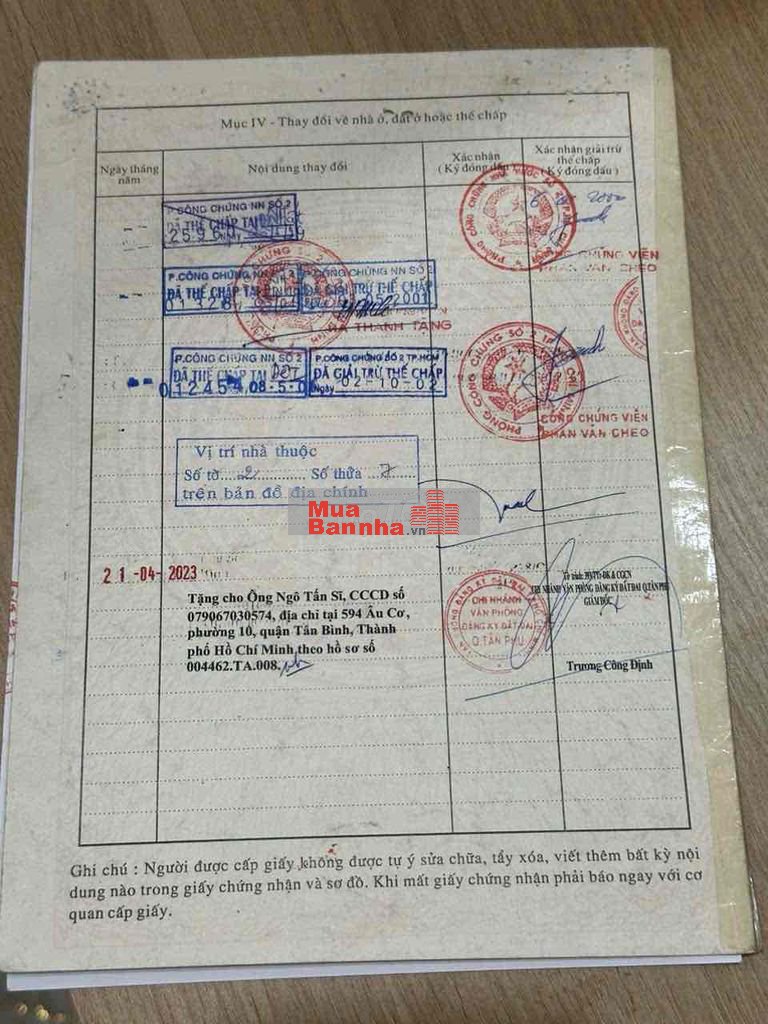 Mục IV - Thay đổi về nhà ở, đất ở hoặc thế chấp
Ngày tháng năm
Nội dung thay đổi
Xác nhận
(Ký đóng dấu)
Xác nhận giải trừ
thế chấp
(Ký đóng dấu)
P.CÔNG CHỨNG NN SỐ 2
ĐÃ THẾ CHẤP TẠI
CÔNG CHỨNG VIÊN
PHAN VĂN CHEO
P.CÔNG CHỨNG NN SỐ 2
ĐÃ THẾ CHẤP TẠI
P.CÔNG CHỨNG NN SỐ 2
ĐÃ GIẢI TRỪ THẾ CHẤP
2001
HÀ THANH TÙNG
P.CÔNG CHỨNG NN SỐ 2
ĐÃ THẾ CHẤP TẠI
P.CÔNG CHỨNG SỐ 2 TP.HCM
ĐÃ GIẢI TRỪ THẾ CHẤP
Ngày 02-10-02
PHÒNG CÔNG CHỨNG SỐ 2 TP. HỒ CHÍ MINH
CÔNG CHỨNG VIÊN
PHAN VĂN CHEO
Vị trí nhà thuộc
Số tờ....2........... Số thửa ...7
trên bản đồ địa chính
Mua
Bannha.vn
21-04-2023
Tặng cho Ông Ngô Tấn Sĩ, CCCD số
079067030574, địa chỉ tại 594 Âu Cơ,
phường 10, quận Tân Bình, Thành
phố Hồ Chí Minh theo hồ sơ số
004462.TA.008.
CHI NHÁNH
VĂN PHÒNG
ĐĂNG KÝ ĐẤT ĐAI
Q.TÂN PHÚ
CHI NHÁNH VĂN PHÒNG ĐĂNG KÝ ĐẤT ĐAI Q.TÂN PHÚ
GIÁM ĐỐC
Trương Công Định
Ghi chú : Người được cấp giấy không được tự ý sửa chữa, tẩy xóa, viết thêm bất kỳ nội
dung nào trong giấy chứng nhận và sơ đồ. Khi mất giấy chứng nhận phải báo ngay với cơ
quan cấp giấy.